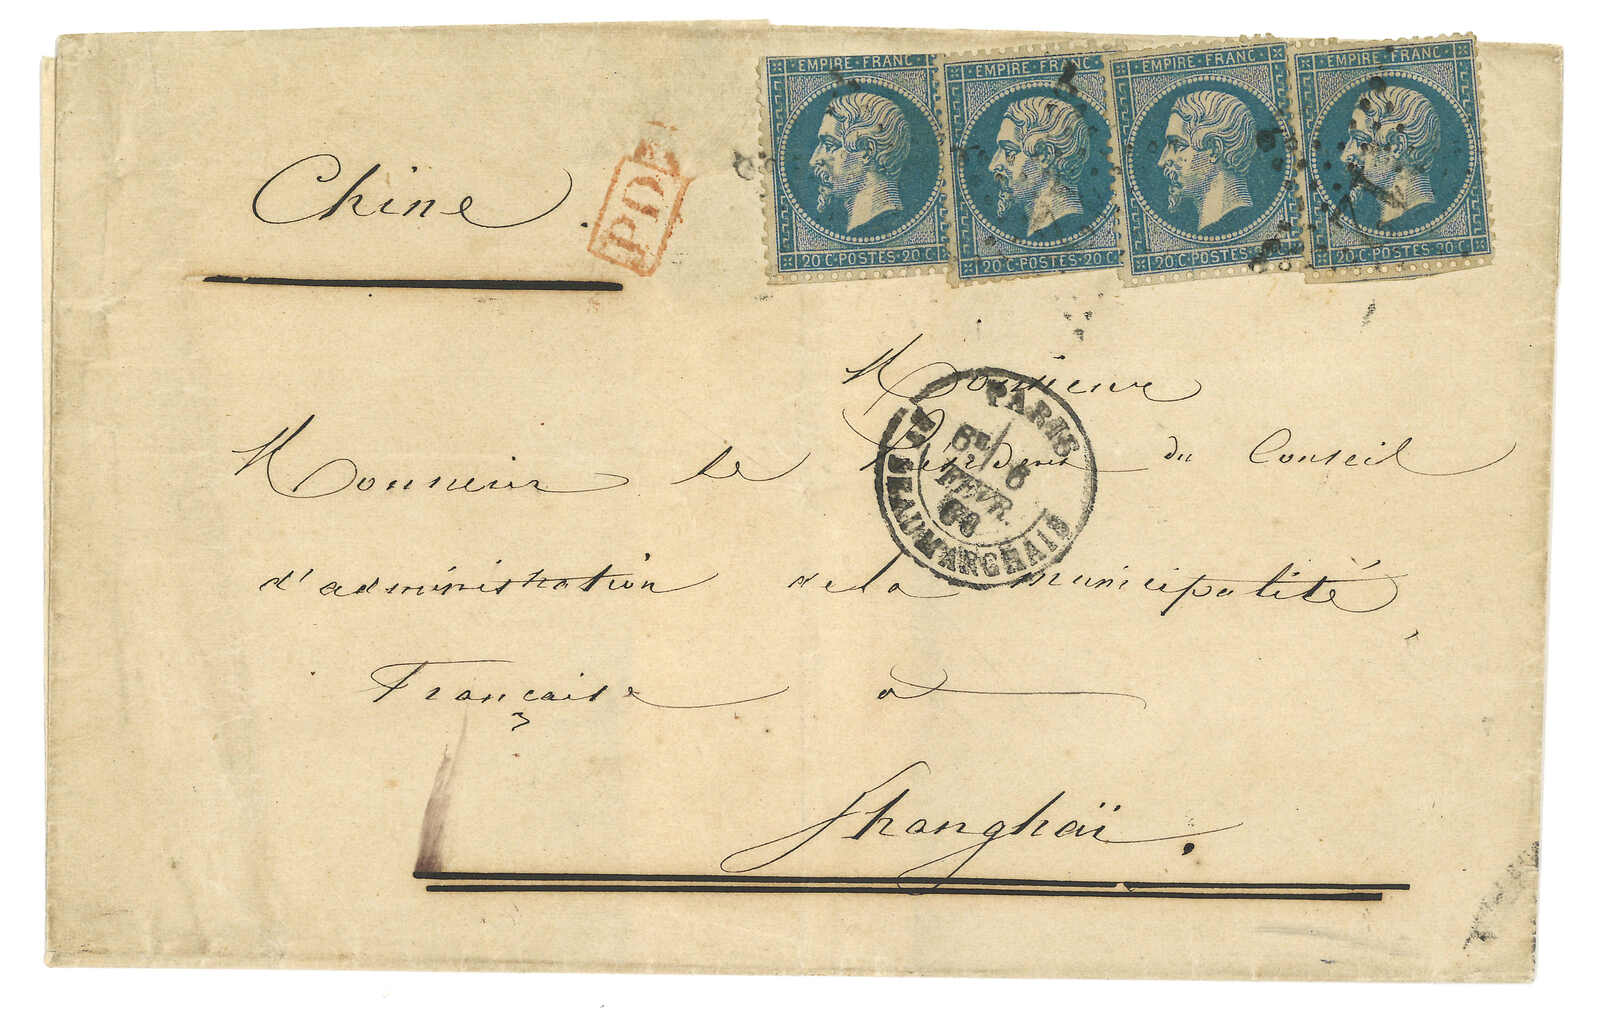 EMPIRE FRANC EMPIRE FRANC EMPIRE FRANC EMPIRE FRANC
20 C POSTES 20 C 20 C POSTES 20 C 20 C POSTES 20 C 20 C POSTES 20 C
Chine.
PD
Monsieur
Monsieur le Président du Conseil
PARIS
6 FEVR.
BD BEAUMARCHAIS
d'administration de la municipalité,
Française a
Shanghaï.